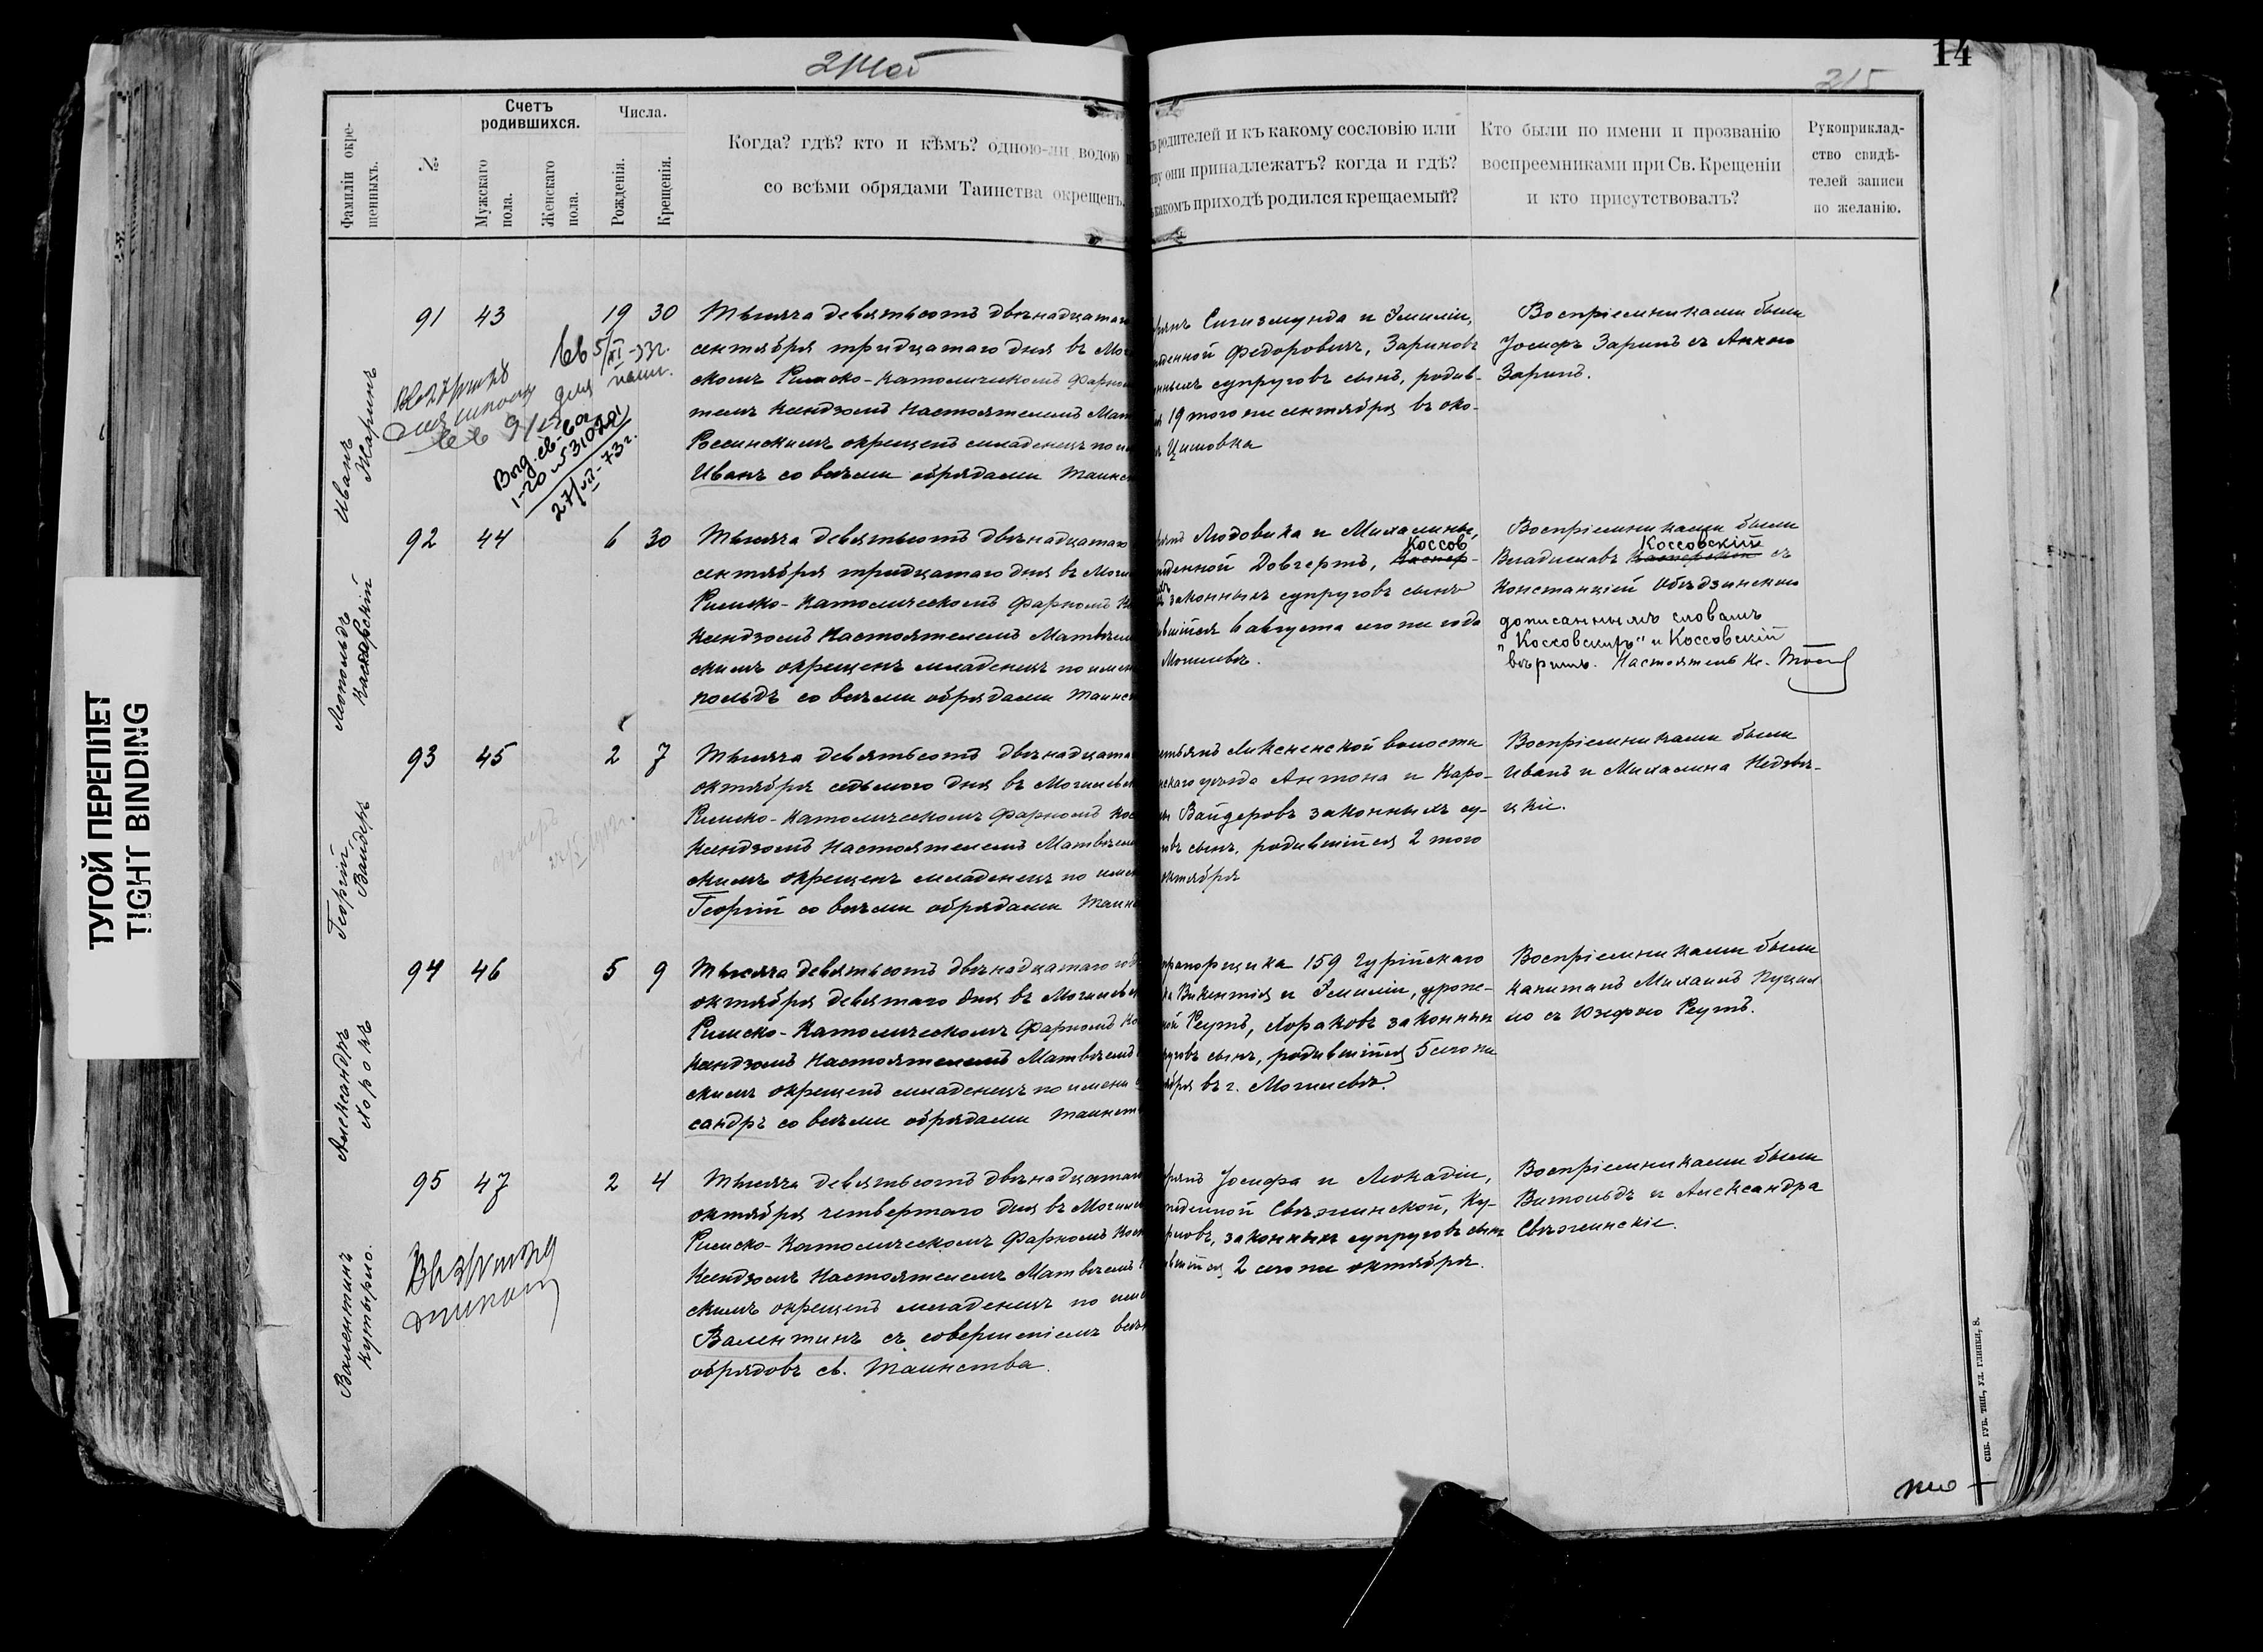 14
215
ТУГОЙ ПЕРЕПЛЕТ
TIGHT BINDING
Фамиліи окре-
щенныхъ.
№
Счетъ
родившихся.
Мужскаго
пола.
Женскаго
пола.
Числа.
Рожденія.
Крещенія.
Когда? гдѣ? кто и кѣмъ? одною-ли водою
со всѣми обрядами Таинства окрещенъ.
родителей и къ какому сословію или
они принадлежатъ? когда и гдѣ?
какомъ приходѣ родился крещаемый?
Кто были по имени и прозванію
воспреемниками при Св. Крещеніи
и кто присутствовалъ?
Рукоприклад-
ство свидѣ-
телей записи
по желанію.
Иванъ
Жаринъ
91 43 19 30
Выд. св-во
27/VII-73г.
Тысяча девятьсотъ двѣнадцатаго
сентября тридцатаго дня въ Мог
скомъ Римско-Католическомъ Фарном
темъ Ксендзомъ Настоятелемъ Мат
Россинскимъ окрещенъ младенецъ по и
Иванъ со всѣми обрядами Таинс
Сигизмунда и Эмиліи,
жденной Федоровичъ, Зариновъ
нныхъ супруговъ сынъ, родив-
19 того же сентября въ око-
Цитовка
Воспріемниками были
Іосифъ Заринъ съ Анною
Заринъ.
Леопольдъ
92 44 6 30
Тысяча девятьсотъ двѣнадцатаго
сентября тридцатаго дня въ Могил
Римско-Католическомъ Фарномъ К
Ксендзомъ Настоятелемъ Матвѣем
скимъ окрещенъ младенецъ по имен
польдъ со всѣми обрядами Таинс
Людовика и Михалины,
Коссов
жденной Довгертъ, Каспер-
законныхъ супруговъ сынъ
вшійся 6 августа сего же года
Могилевѣ.
Воспріемниками были
Коссовскій
Владиславъ Касперскій съ
Констанціей Объдзинскою
дописаннымъ словамъ
"Коссовскихъ" и Коссовскій
вѣрить. Настоятель Кс.
Георгій
Вайдеръ
93 45 2 7
Тысяча девятьсотъ двѣнадцата
октября седьмого дня въ Могилевс
Римско-Католическомъ Фарномъ Кос
Ксендзомъ Настоятелемъ Матвѣем
скимъ окрещенъ младенецъ по имен
Георгій со всѣми обрядами Таин
Ликсненской волости
скаго уѣзда Антона и Каро-
Вайдеровъ законныхъ су-
овъ сынъ, родившійся 2 того
октября
Воспріемниками были
Иванъ и Михалина Недзвѣ-
цкіе.
Александръ
Лорокъ
94 46 5 9
Тысяча девятьсотъ двѣнадцатаго год
октября девятаго дня въ Могилевс
Римско-Католическомъ Фарномъ Ко
Ксендзомъ Настоятелемъ Матвѣемъ
скимъ окрещенъ младенецъ по имени
сандръ со всѣми обрядами Таинст
прапорщика 159 Гурійскаго
Викентія и Эмиліи, уроже-
ной Реутъ, Лораковъ законных
руговъ сынъ, родившійся 5 сего же
ября въ г. Могилевѣ.
Воспріемниками были
капитанъ Михаилъ Пукял
ло съ Юзефою Реутъ.
Валентинъ
Кутырло.
95 47 2 4
Тысяча девятьсотъ двѣнадцатаг
октября четвертаго дня въ Могилев
Римско-Католическомъ Фарномъ Кост
Ксендзомъ Настоятелемъ Матвѣемъ
скимъ окрещенъ младенецъ по име
Валентинъ съ совершеніемъ всѣх
обрядовъ св. Таинства.
Іосифа и Леокадіи,
жденной Свѣжинской, Ку-
рловъ, законныхъ супруговъ сынъ
вшійся 2 сего же октября.
Воспріемниками были
Витольдъ и Александра
Свѣжинскіе.
СПБ. ГУБ. ТИП., УЛ. ГЛИНКИ, 8.